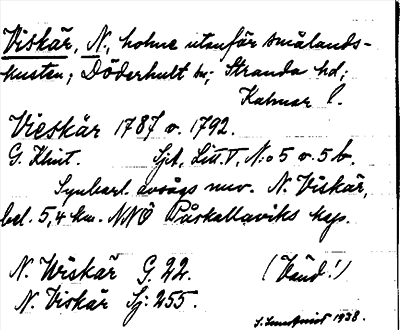 Viskär, N., holme utanför smålands-
kusten; Döderhult sn; Stranda hd;
Kalmar l.
Vieskär 1787 o. 1792.
G. Klint. Sjk. Litt. T, N:o 5 o. 5 b.
Synbarl. avsågs nuv. N. Viskär,
bel. 5,4 km. NNÖ Påskallaviks kap.
N. Wiskär G. 22. (Vänd!)
N. Viskär Sj: 255.
1938.